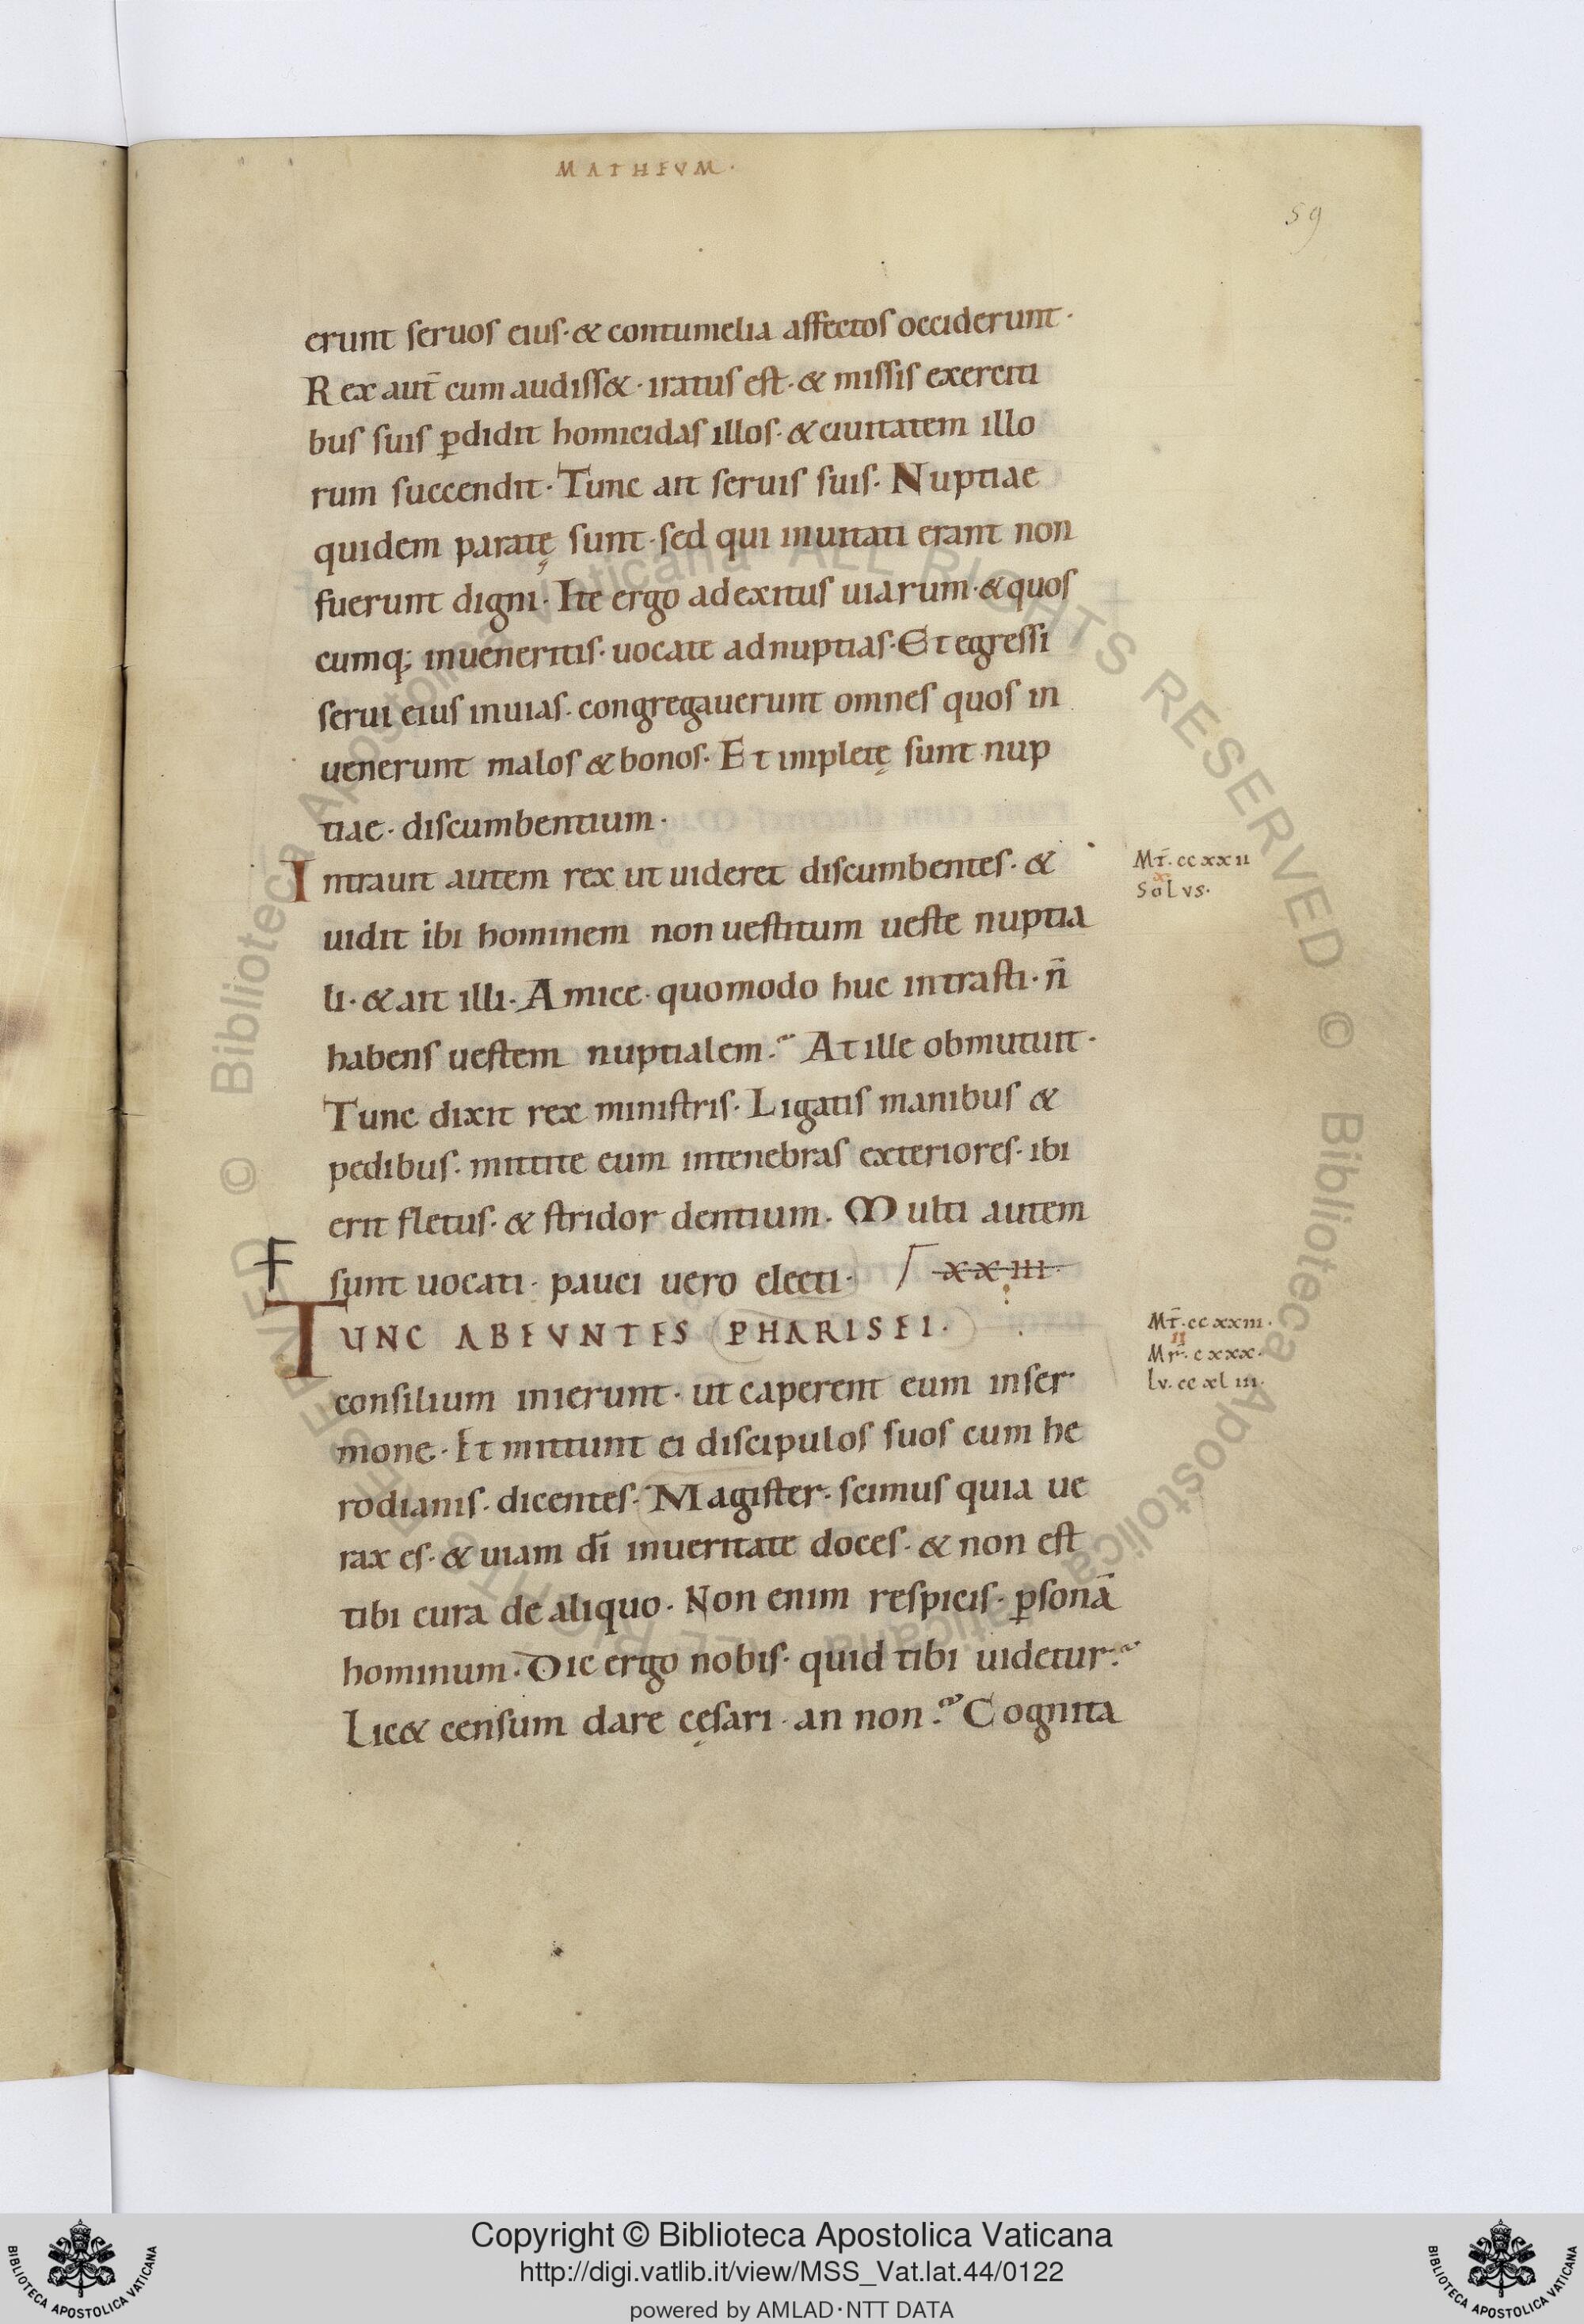 MATHEVM·
59
erunt seruos eius· & contumelia affectos occiderunt·
Rex aut̄ cum audiss&· iratus est· & missis exerciti
bus suis ꝑdidit homicidas illos· & ciuitatem illo
rum succendit· Tunc ait seruis suis· Nuptiae
quidem paratę sunt· sed qui inuitati erant non
fuerunt digni· Ite ergo ad exitus uiarum· & quos
cumq; inueneritis· uocate ad nuptias· Et egressi
serui eius in uias· congregauerunt omnes quos in
uenerunt malos & bonos· Et impletę sunt nup
tiae· discumbentium·
Intrauit autem rex ut uideret discumbentes· &
Mt̄· ccxxii
Solus·
uidit ibi hominem non uestitum ueste nuptia
li· & ait illi· Amice· quomodo huc intrasti· n̄
habens uestem nuptialem? At ille obmutuit·
Tunc dixit rex ministris· Ligatis manibus &
pedibus· mittite eum in tenebras exteriores· ibi
erit fletus· & stridor dentium· Multi autem
sunt uocati· pauci uero electi· xxiii·
TUNC ABEVNTES PHARISEI·
Mt̄· ccxxiii·
Mr̄· cxxx·
Lv· ccxliii·
consilium inierunt· ut caperent eum in ser
mone· Et mittunt ei discipulos suos cum he
rodianis· dicentes· Magister· scimus quia ue
rax es· & uiam dī in ueritate doces· & non est
tibi cura de aliquo· Non enim respicis· ꝑsonā
hominum· Dic ergo nobis· quid tibi uidetur?
Lic& censum dare cęsari· an non? Cognita
© Biblioteca Apostolica Vaticana ALL RIGHTS RESERVED © Biblioteca Apostolica Vaticana ALL RIGHTS RESERVED
Copyright © Biblioteca Apostolica Vaticana
http://digi.vatlib.it/view/MSS_Vat.lat.44/0122
powered by AMLAD·NTT DATA
BIBLIOTECA APOSTOLICA VATICANA
BIBLIOTECA APOSTOLICA VATICANA